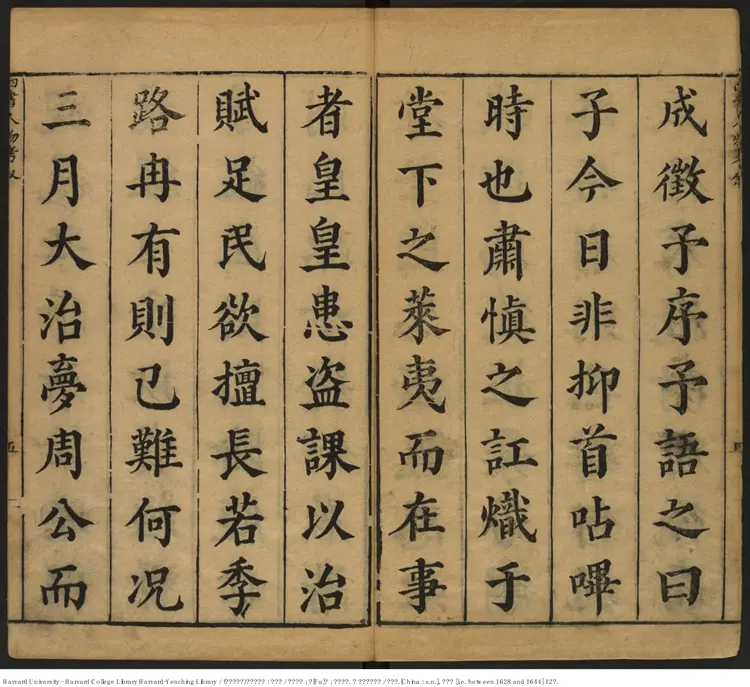 成徵予序予語之曰
子今日非抑首呫嗶
時也肅愼之訌熾于
堂下之萊夷而在事
者皇皇患盜課以治
賦足民欲擅長若季
路冉有則已難何况
三月大治夢周公而
四書人物考叙
五
四
Harvard University - Harvard College Library Harvard-Yenching Library / (?????)????? : ??? / ???? ; ?[Fu]? ; ????. ? ?????? / ???. [China : s.n.], ??? [i.e. between 1628 and 1644] 12?.